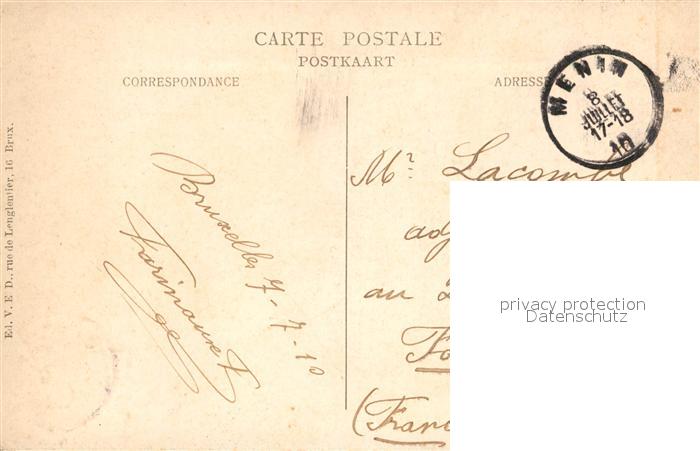 CARTE POSTALE
POSTKAART
CORRESPONDANCE
ADRESSE
MENIN
8
JUILLET
17-18
10
Ed. V. E D., rue de Lenglentier, 16 Brux.
Bruxelles 7-7-10
Mr Lacombe
adj
au
(Fran
privacy protection
Datenschutz